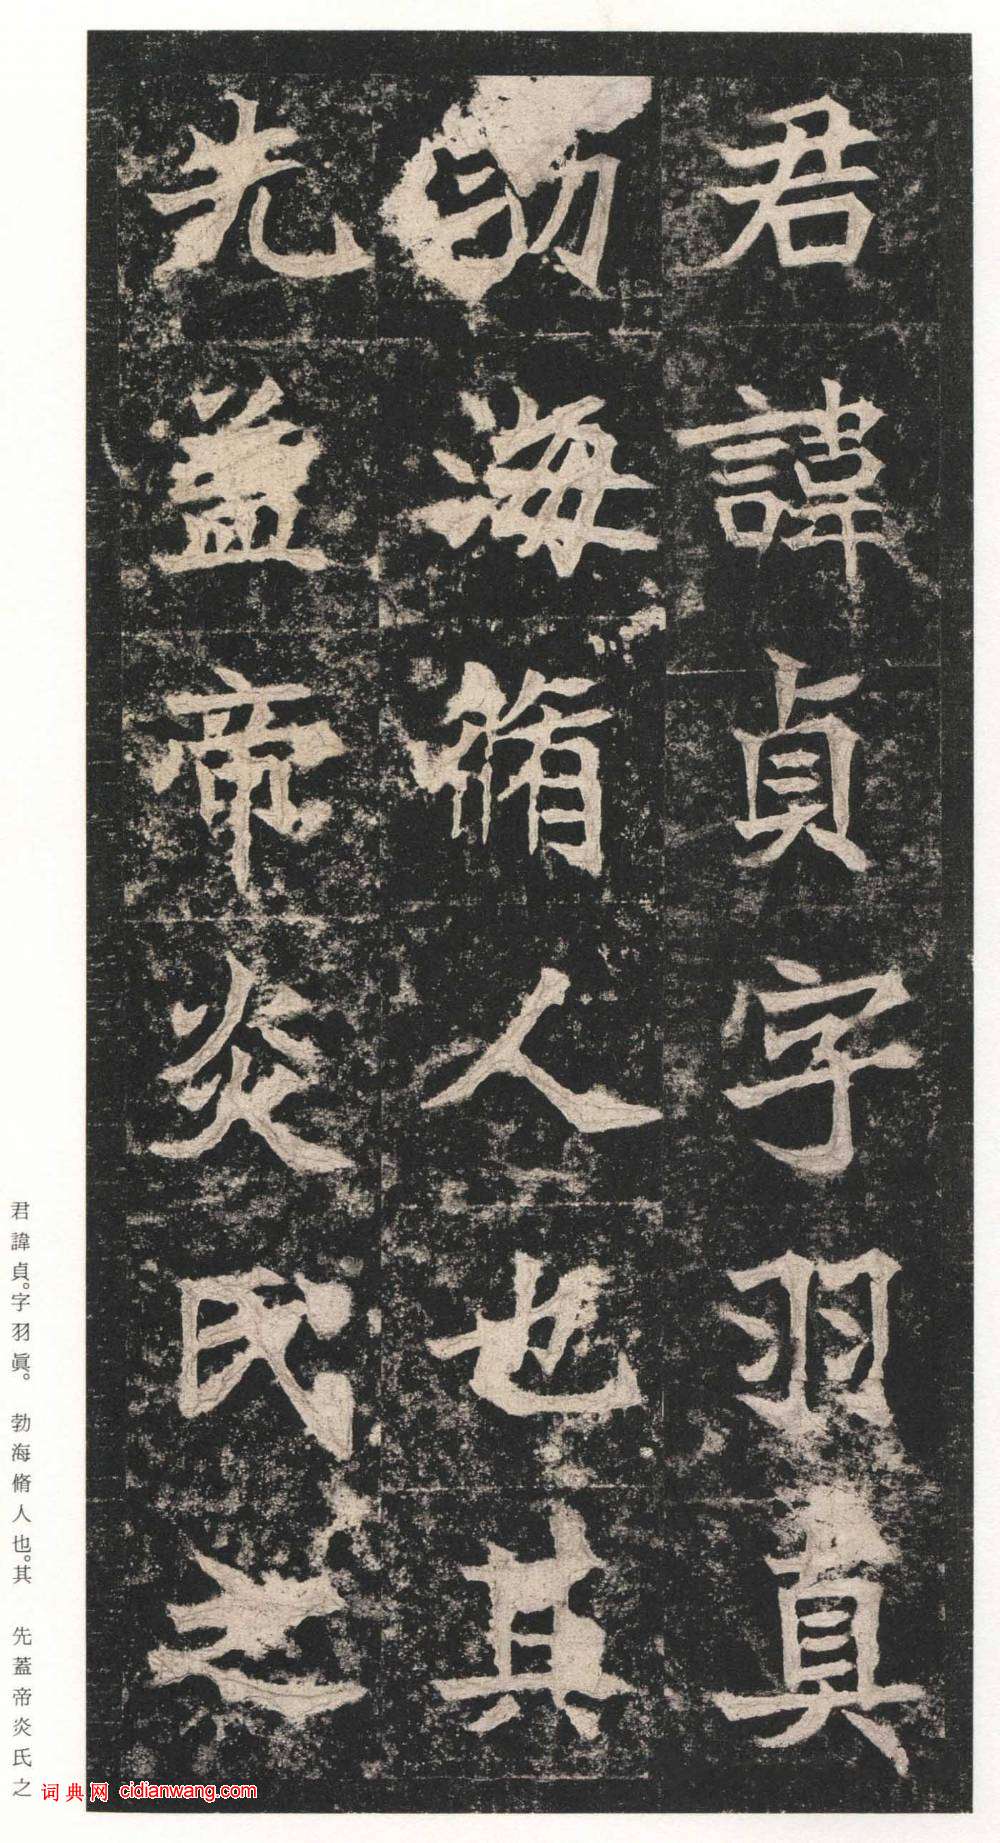 君諱貞字羽真
勃海脩人也其
先蓋帝炎氏之
君諱貞。字羽眞。 勃海脩人也。其 先蓋帝炎氏之
词典网 cidianwang.com